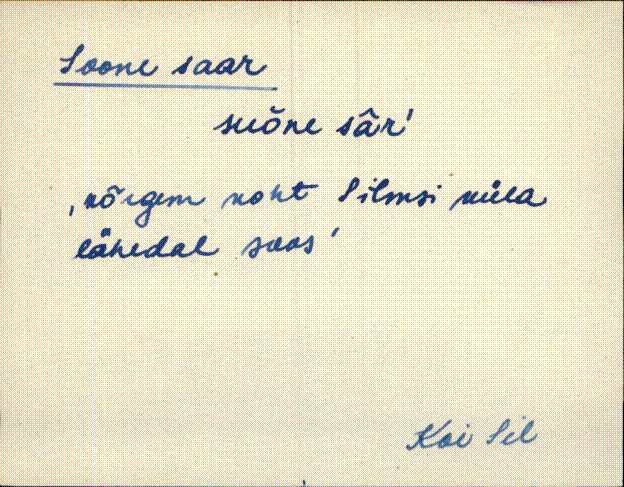 Soone saar
suõne sâr'
‚kõrgem koht Silmsi küla
lähedal soos'
Koi Sil